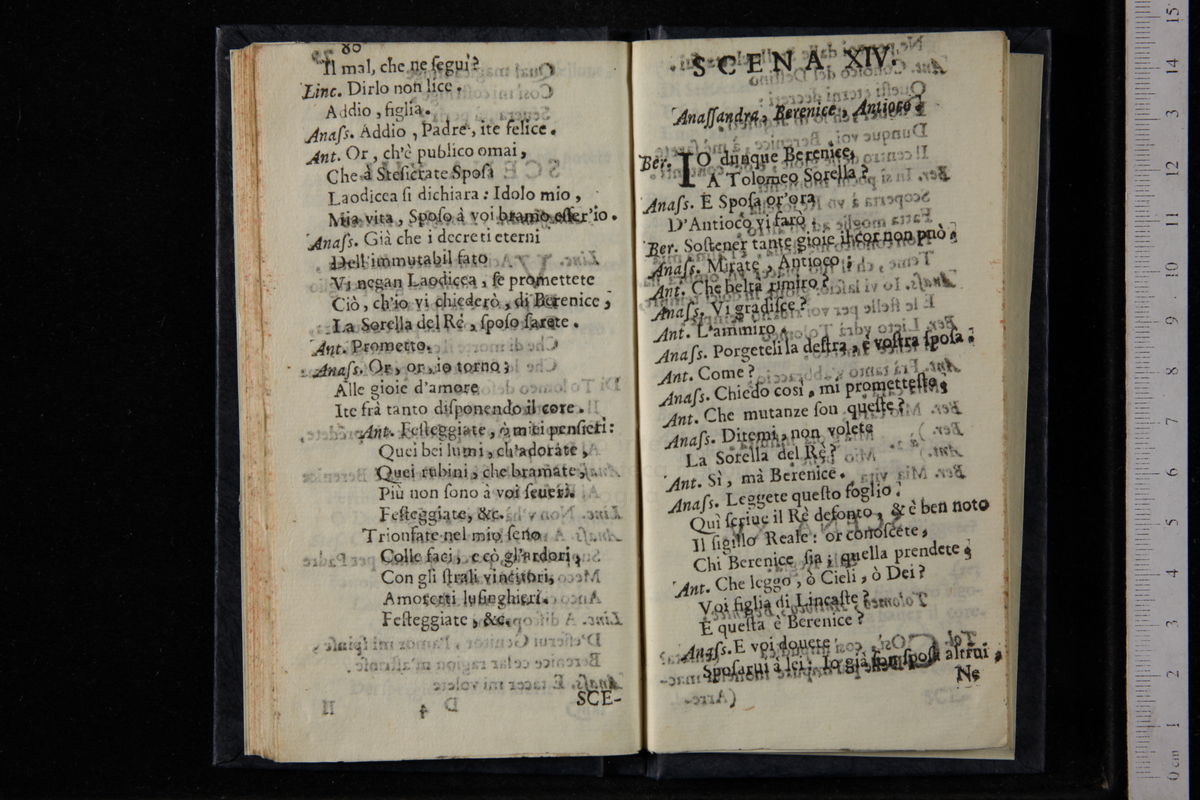 80
Il mal, che ne ſegui?
Linc. Dirlo non lice.
Addio, figlia.
Anaſs. Addio, Padre, ite felice.
Ant. Or, ch'è publico omai,
Che à Steſicrate Spoſa
Laodicea ſi dichiara: Idolo mio,
Mia vita, Spoſo à voi bramo eſſer'io.
Anaſs. Già che i decreti eterni
Dell'immutabil fato
Vi negan Laodicea, ſe promettete
Ciò, ch'io vi chiederò, di Berenice,
La Sorella del Rè, ſpoſo ſarete.
Ant. Prometto.
Anaſs. Or, or, io torno;
Alle gioie d'amore
Ite frà tanto diſponendo il core.
Ant. Feſteggiate, ò miei penſieri:
Quei bei lumi, ch'adorate,
Quei rubini, che bramate,
Più non ſono à voi ſeueri.
Feſteggiate, &c.
Trionfate nel mio ſeno
Colle faci, e cò gl'ardori,
Con gli ſtrali vincitori,
Amoretti luſinghieri.
Feſteggiate, &c.
SCE-
SCENA XIV.
Anaſſandra, Berenice, Antioco.
Ber. IO dunque Berenice,
A Tolomeo Sorella?
Anaſs. E Spoſa or'ora
D'Antioco vi farò.
Ber. Soſtener tante gioie il cor non può.
Anaſs. Mirate, Antioco;
Ant. Che beltà rimiro?
Anaſs. Vi gradiſce?
Ant. L'ammiro.
Anaſs. Porgeteli la deſtra, è voſtra ſpoſa.
Ant. Come?
Anaſs. Chiedo così, mi prometteſte.
Ant. Che mutanze ſon queſte?
Anaſs. Ditemi, non volete
La Sorella del Rè?
Ant. Sì, mà Berenice.
Anaſs. Leggete queſto foglio.
Quì ſcriue il Rè defonto, & è ben noto
Il ſigillo Reale: or conoſcete,
Chi Berenice ſia; quella prendete.
Ant. Che leggo, ò Cieli, ò Dei?
Voi figlia di Lincaſte?
E queſta è Berenice?
Anaſs. E voi douete
Spoſarui à lei: Io già ſon ſpoſa altrui,
Ne